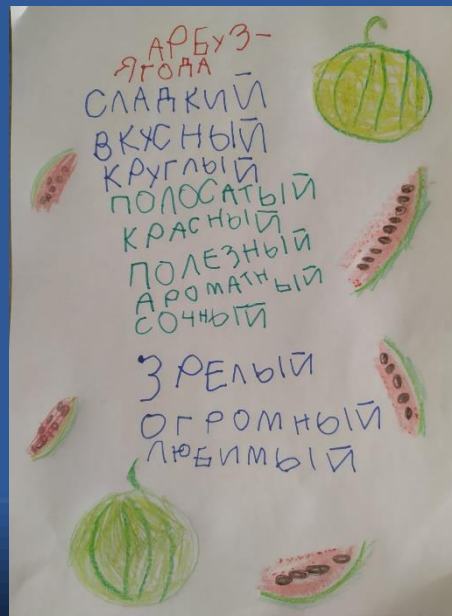 АРБУЗ-
ЯГОДА
СЛАДКИЙ
ВКУСНЫЙ
КРУГЛЫЙ
ПОЛОСАТЫЙ
КРАСНЫЙ
ПОЛЕЗНЫЙ
АРОМАТНЫЙ
СОЧНЫЙ
ЗРЕЛЫЙ
ОГРОМНЫЙ
ЛЮБИМЫЙ